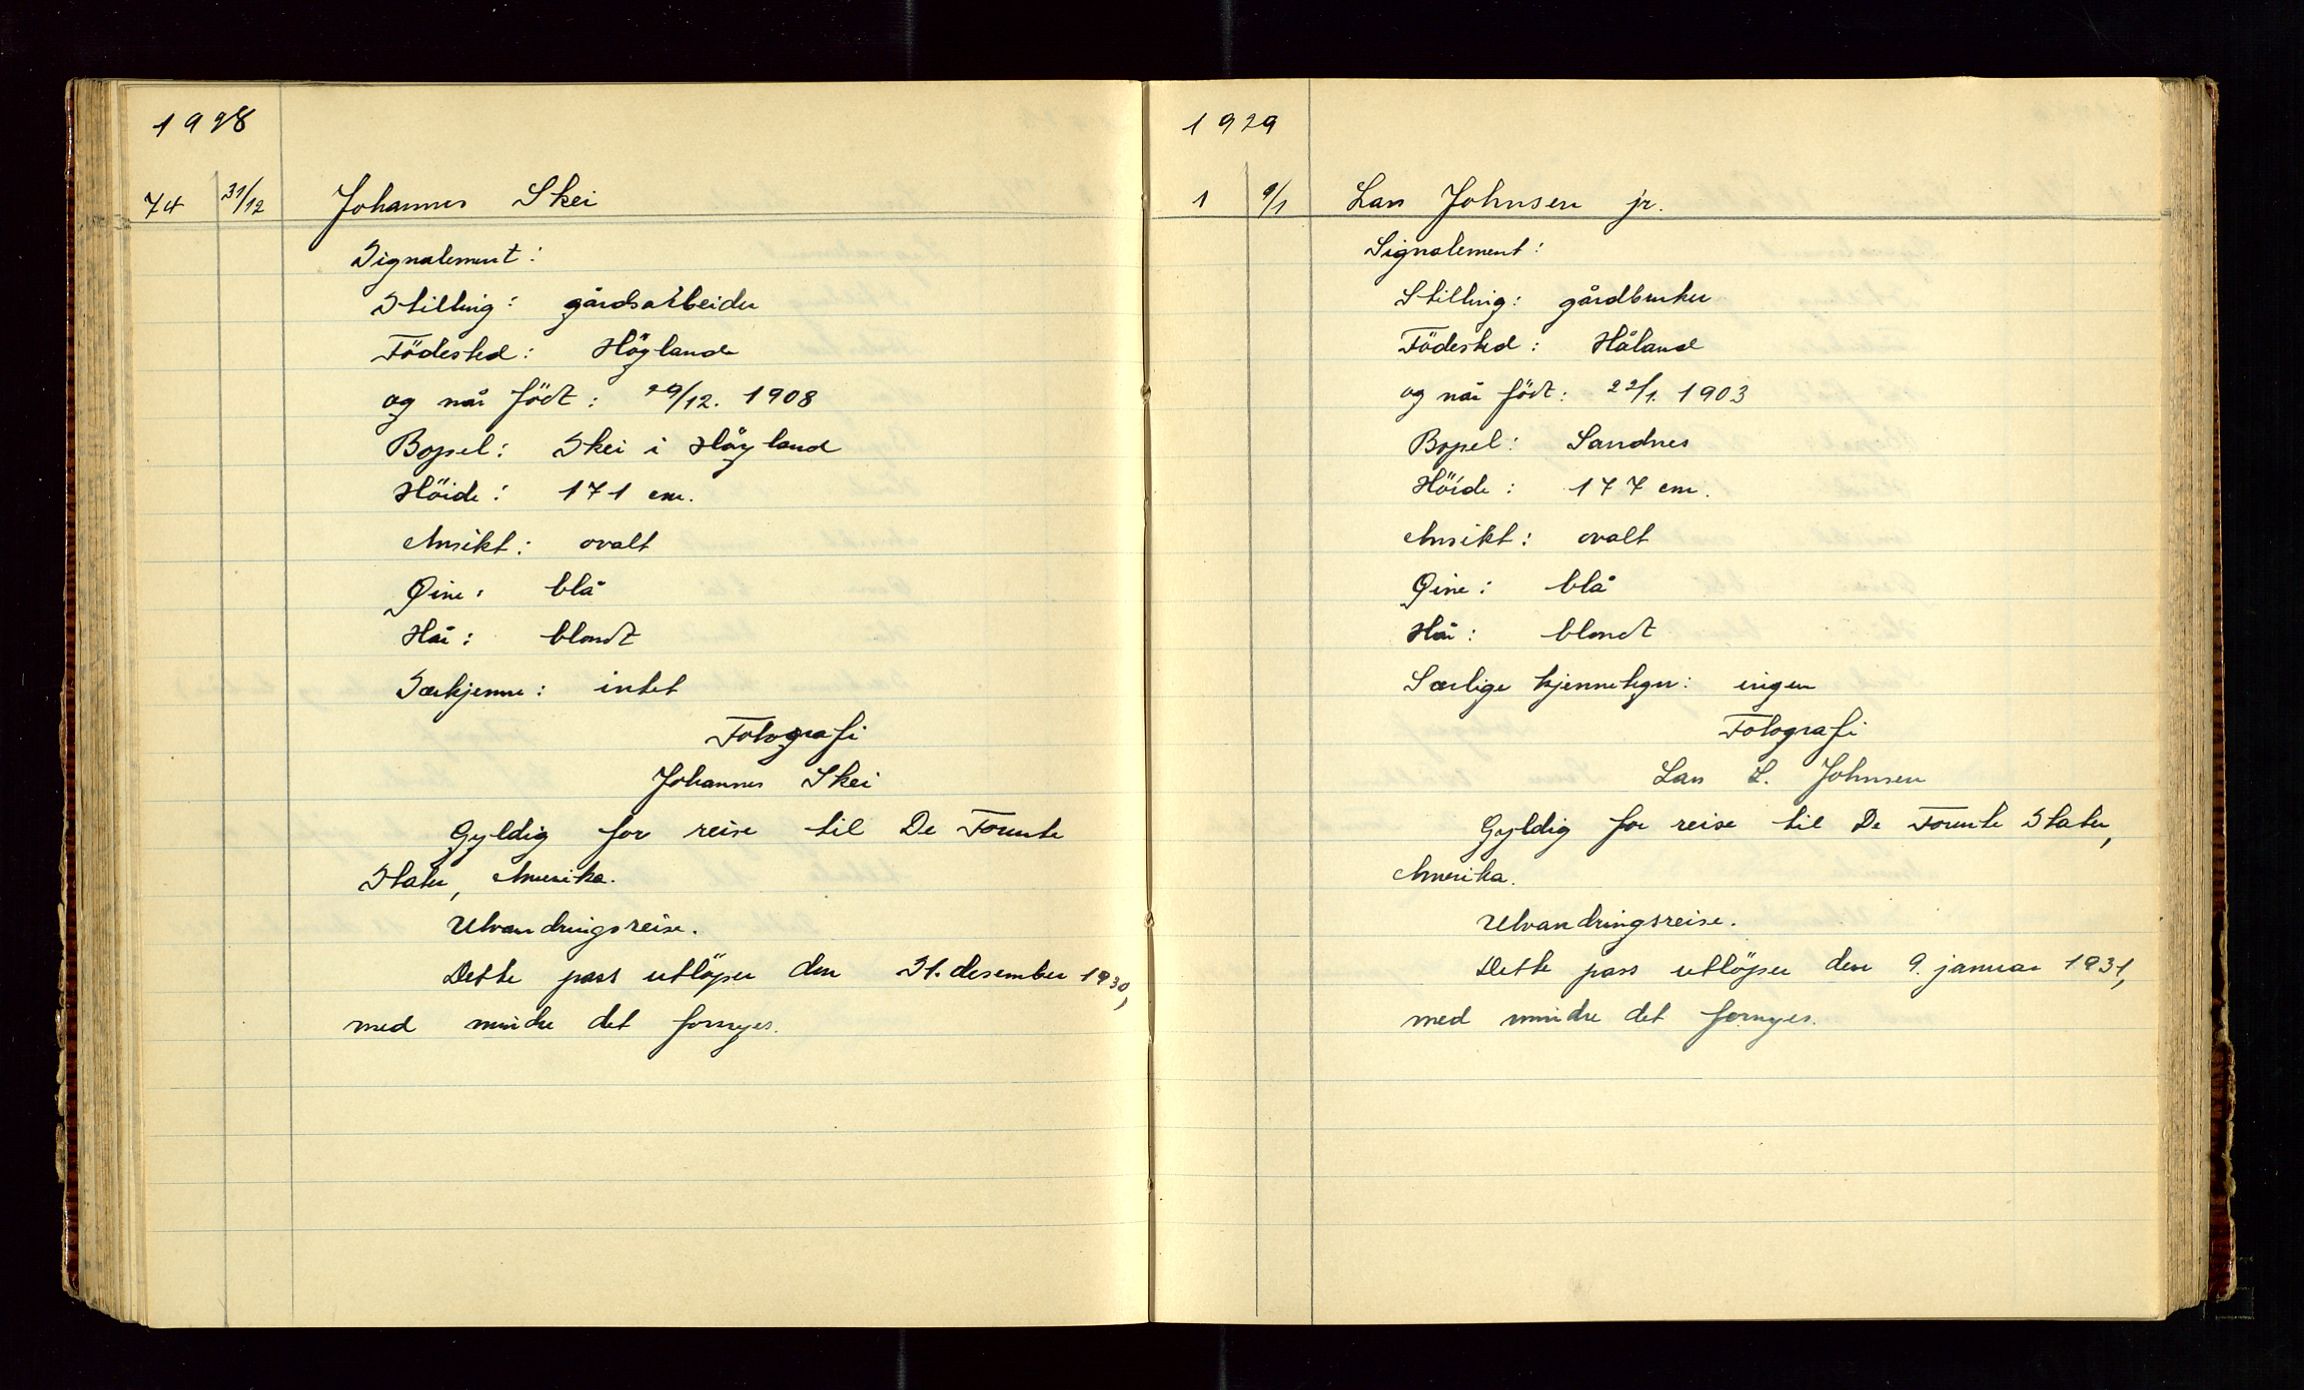 1928
74 31/12 Johannes Skei
Signalement:
Stilling: gårdsarbeider
Födested: Högland
og når födt: 29/12. 1908
Bopel: Skei i Högland
Höide: 171 cm.
Ansikt: ovalt
Øine: blå
Hår: blondt
Særkjenne: intet
Fotografi
Johannes Skei
Gyldig for reise til De Forente
Stater, Amerika.
Utvandringsreise.
Dette pass utlöper den 31. desember 1930,
med mindre det fornyes.
1929
1 9/1 Lars Johnsen jr.
Signalement:
Stilling: gårdbruker
Födested: Håland
og når födt: 22/1. 1903
Bopel: Sandnes
Höide: 177 cm.
Ansikt: ovalt
Øine: blå
Hår: blondt
Særlige kjennetegn: ingen
Fotografi
Lars L. Johnsen
Gyldig for reise til De Forente Stater,
Amerika.
Utvandringsreise.
Dette pass utlöper den 9. januar 1931,
med mindre det fornyes.